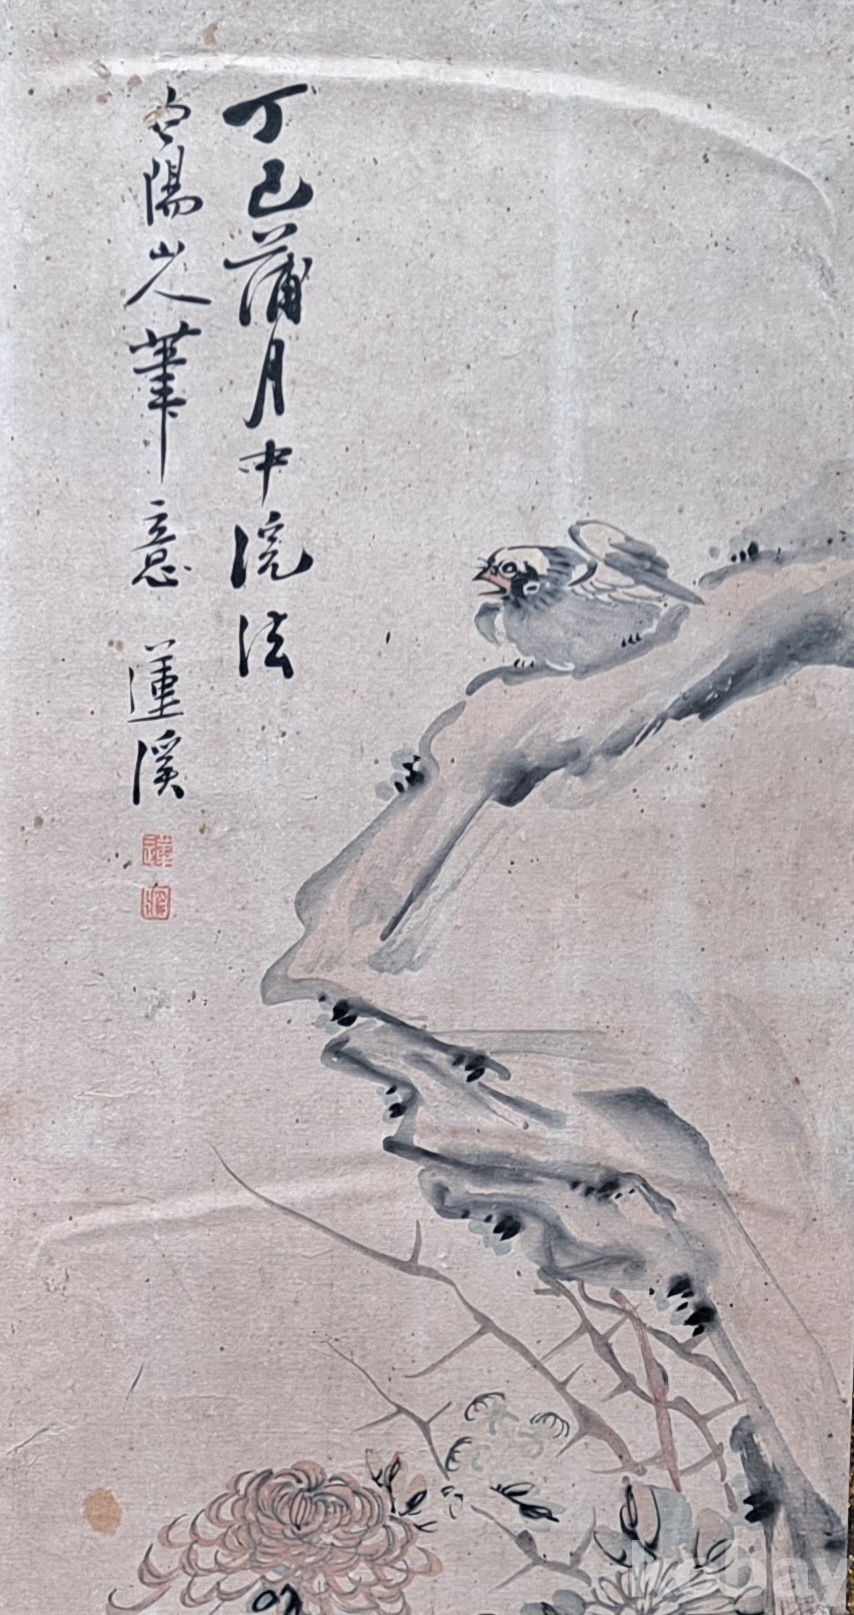 丁巳蒲月中浣法
白陽山人筆意 蓮溪
kobay